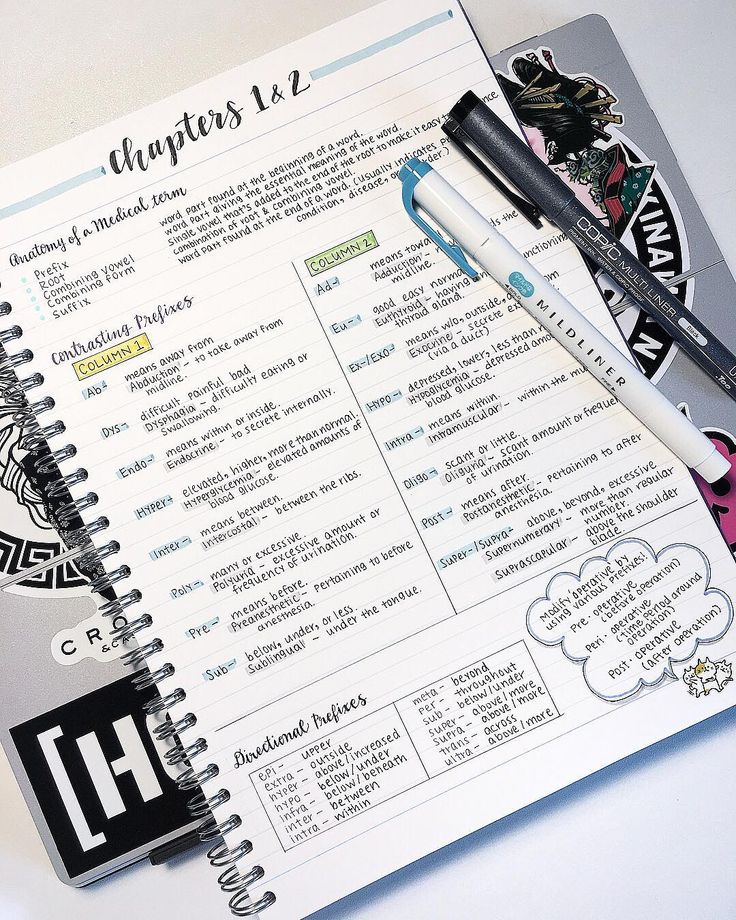 Chapters 1 & 2
Anatomy of a Medical term
Prefix
Root
Combining vowel
Combining Form
Suffix
word part found at the beginning of a word.
word part giving the essential meaning of the word.
single vowel that's added to the end of the root to make it easy to
combination of root & combining vowel.
word part found at the end of a word. (usually indicates
condition, disease, or
Contrasting Prefixes
COLUMN 1
Ab- means away from
Abduction - to take away from
midline.
Dys- difficult, painful, bad
Dysphagia - difficulty eating or
swallowing.
Endo- means within or inside.
Endocrine - to secrete internally.
Hyper- elevated, higher, more than normal.
Hyperglycemia - elevated amounts of
blood glucose.
Inter- means between.
Intercostal - between the ribs.
Poly- many or excessive.
Polyuria - excessive amount or
frequency of urination.
Pre- means before.
Preanesthetic - pertaining to before
anesthesia.
Sub- below, under, or less.
Sublingual - under the tongue.
COLUMN 2
Ad- means
Adduction -
midline.
Eu- good easy
Euthyroid - having
thyroid gland.
Ex-/Exo- means w/o, outside,
Exocrine - secrete
(via a duct)
Hypo- depressed, lower, less than
Hypoglycemia - depressed
blood glucose.
Intra- means within.
Intramuscular - within the
Oligo- scant or little.
Oliguria - scant amount or
of urination.
Post- means after.
Postanesthetic - pertaining to after
anesthesia.
Super-/Supra- above, beyond, excessive
Supernumerary - more than regular
number.
Suprascapular - above the shoulder
blade
Modify 'operative' by
using various prefixes!
Pre-operative
(before operation)
Peri-operative
(time period around
operation)
Post-operative
(after operation)
Directional Prefixes
epi - upper
extra - outside
hyper - above/increased
hypo - below/under
infra - below/beneath
inter - between
intra - within
meta - beyond
per - throughout
sub - below/under
super - above/more
supra - above/more
trans - across
ultra - above/more
MILDLINER
COPIC MULTILINER
CRO
[H